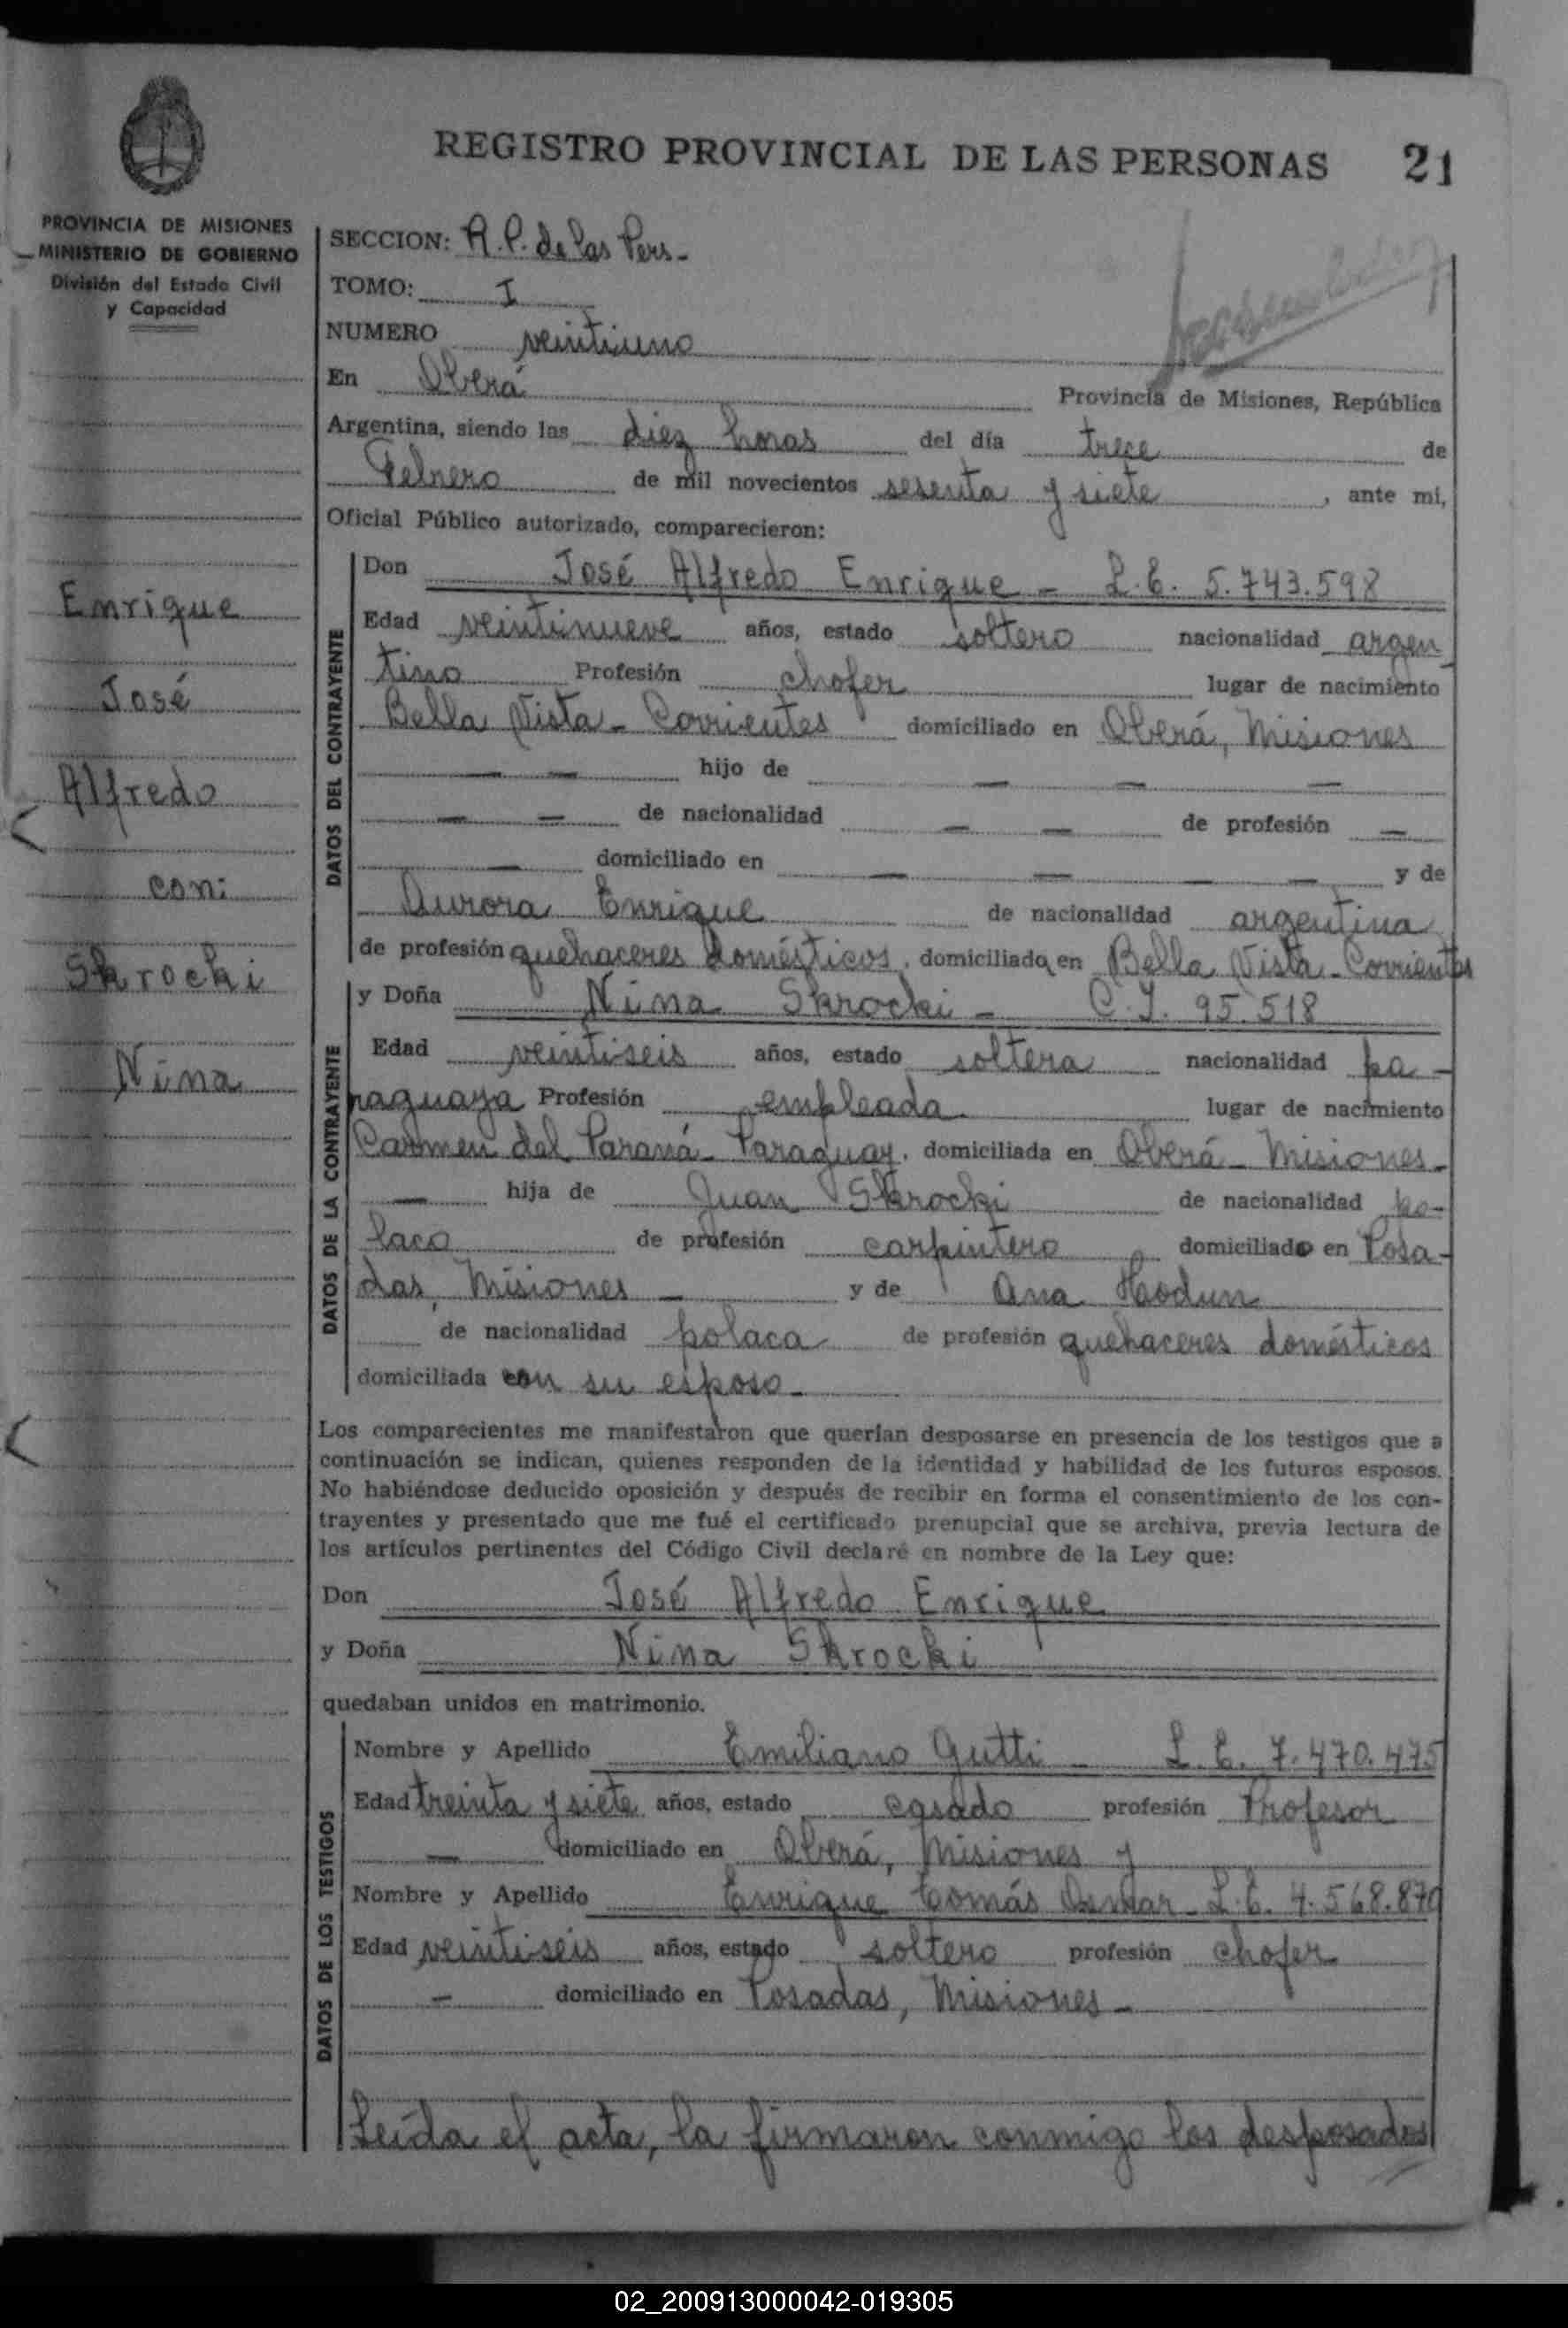 REGISTRO PROVINCIAL DE LAS PERSONAS 21
PROVINCIA DE MISIONES
MINISTERIO DE GOBIERNO
División del Estado Civil
y Capacidad
Enrique
José
Alfredo
con:
Skrocki
Nina
SECCION: R. P. de las Pers-
TOMO: I
NUMERO veintiuno
En Oberá Provincia de Misiones, República
Argentina, siendo las diez horas del día trece de
Febrero de mil novecientos sesenta y siete, ante mi,
Oficial Público autorizado, comparecieron:
DATOS DEL CONTRAYENTE
Don José Alfredo Enrique - L.E. 5.743.598
Edad veintinueve años, estado soltero nacionalidad argen
tino Profesión chofer lugar de nacimiento
Bella Vista - Corrientes domiciliado en Oberá, Misiones
— — hijo de — — —
— — de nacionalidad — — de profesión —
— domiciliado en — — — — y de
Aurora Enrique de nacionalidad argentina
de profesión quehaceres domésticos, domiciliada en Bella Vista - Corrientes
DATOS DE LA CONTRAYENTE
y Doña Nina Skrocki - C.I. 95.518
Edad veintiseis años, estado soltera nacionalidad pa-
raguaya Profesión empleada lugar de nacimiento
Carmen del Paraná - Paraguay, domiciliada en Oberá - Misiones -
— hija de Juan Skrocki de nacionalidad po-
laco de profesión carpintero domiciliado en Posa-
das, Misiones — y de Ana Hodun
de nacionalidad polaca de profesión quehaceres domésticos
domiciliada con su esposo -
Los comparecientes me manifestaron que querían desposarse en presencia de los testigos que a
continuación se indican, quienes responden de la identidad y habilidad de los futuros esposos.
No habiéndose deducido oposición y después de recibir en forma el consentimiento de los con-
trayentes y presentado que me fué el certificado prenupcial que se archiva, previa lectura de
los artículos pertinentes del Código Civil declaré en nombre de la Ley que:
Don José Alfredo Enrique
y Doña Nina Skrocki
quedaban unidos en matrimonio.
DATOS DE LOS TESTIGOS
Nombre y Apellido Emiliano Gutti - L.E. 7.470.475
Edad treinta y siete años, estado casado profesión Profesor
— domiciliado en Oberá, Misiones y
Nombre y Apellido Enrique Tomás - L.E. 4.568.870
Edad veintiseis años, estado soltero profesión chofer
— domiciliado en Posadas, Misiones -
Leída el acta, la firmaron conmigo los desposados
02_200913000042-019305